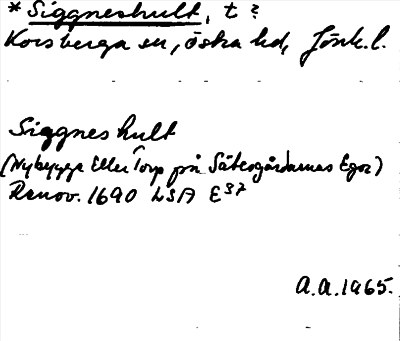 * Siggneshult, t ?
Korsberga sn, östra hd, Jönk. l.
Siggnes hult
(Nybygge Eller Torp på Sätesgårdarnas Egor)
Renov. 1690 LSA E37
A.A. 1965.